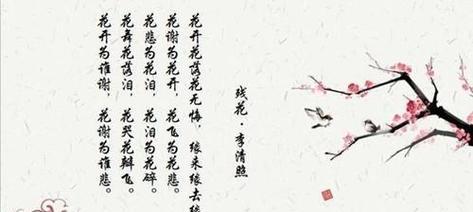 残花·李清照
花开花落花无悔，缘来缘去缘
花谢为花开，花飞为花悲。
花悲为花泪，花泪为花碎。
花舞花落泪，花哭花瓣飞。
花开为谁谢，花谢为谁悲。